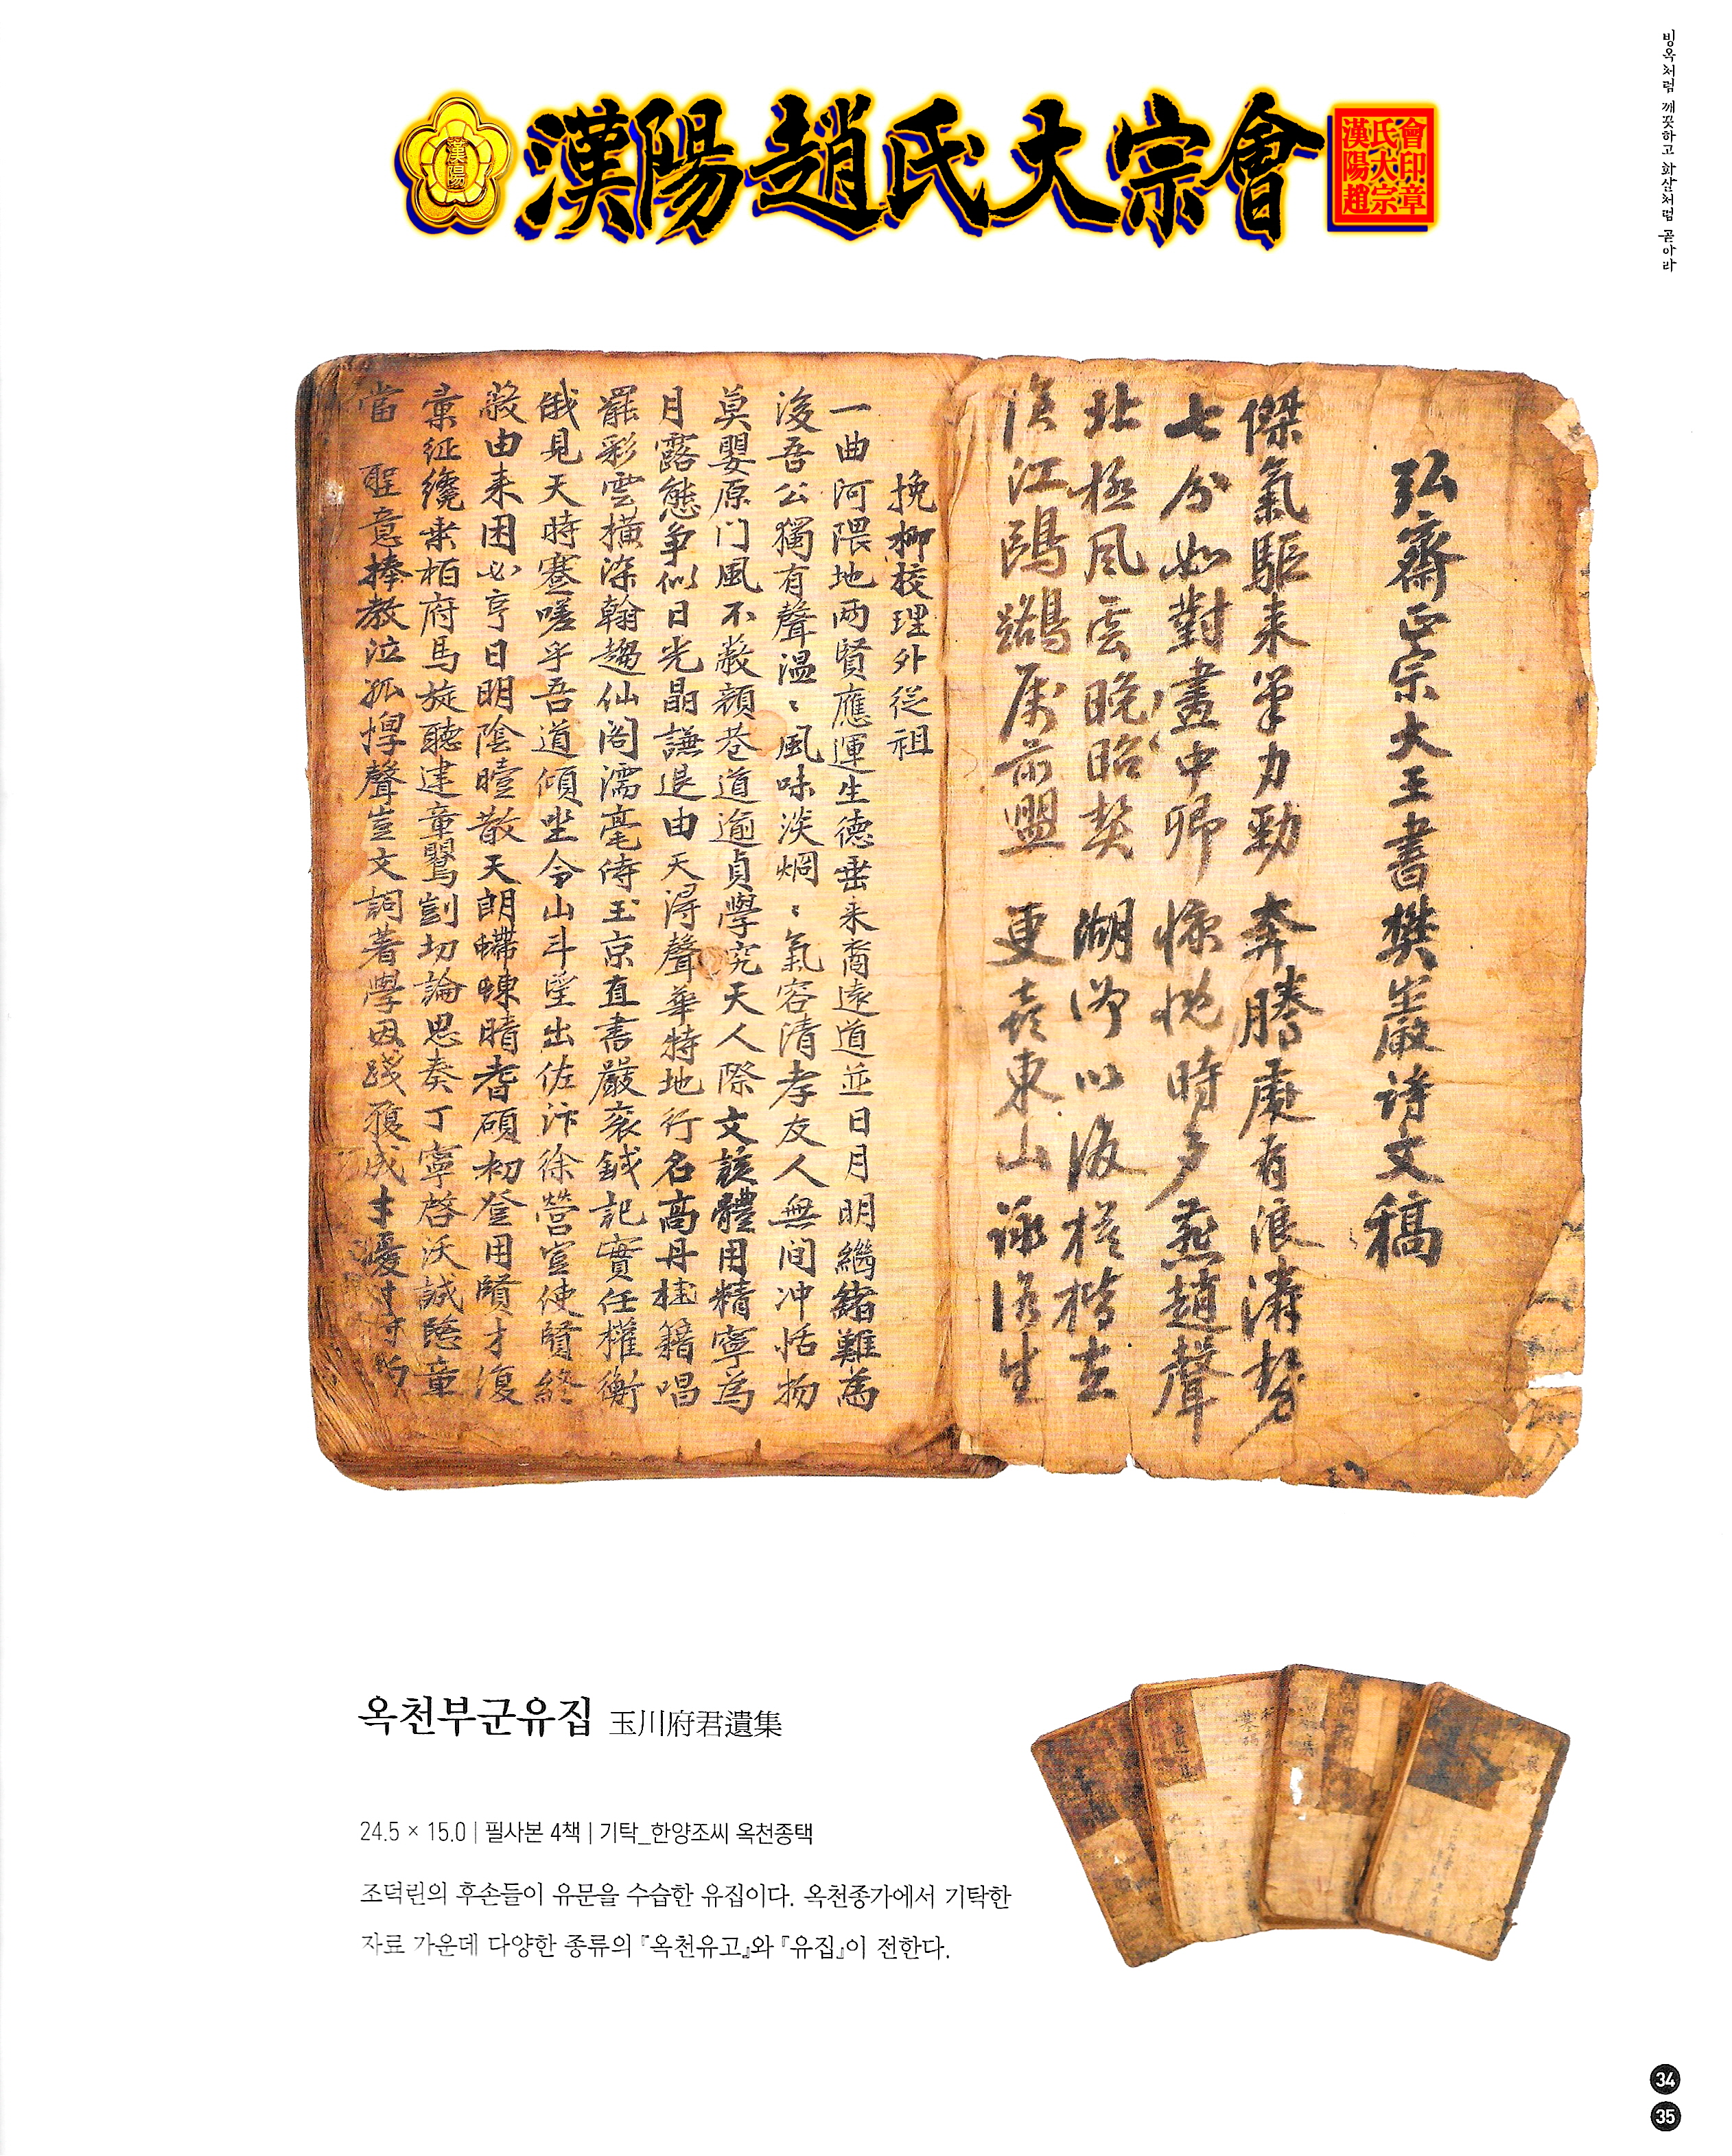 빙옥처럼 깨끗하고 화살처럼 곧아라
漢陽
漢陽趙氏大宗會
會印章
氏大宗
漢陽趙
弘齋正宗大王書樊巖詩文稿
傑氣驅來筆力勁奔騰處有浪濤勢
七分如對畫中卿惊慨時多燕趙聲
北極風雲晩昭契湖以後
江鷗鷁前盟更喜東山詠後生
挽柳校理外從祖
一曲河隈地两賢應運生德垂来裔遠道並日月明繼緒難爲
後吾公獨有聲温〻風味淡炯〻氣容清孝友人無间冲恬物
莫嬰原门風不蔽顔巷道逾貞學究天人際文該體用精寧為
月露態争似日光晶謙退由天淂聲華特地行名高丹桂籍唱
罷彩雲橫深翰趨仙阁濡毫侍玉京直書嚴衮鉞記實任權衡
俄見天時蹇嗟乎吾道傾坐令山斗望出佐汴徐營豈使賢終
蔽由来困必亨日明陰曀散天朗螮蝀晴耆碩初登用賢才復
彙征纔乘栢府馬旋聽建章鸎剴切論思奏丁寧啓沃誠隐章
當 聖意捧教泣孤惸聲豈文詞著學因踐履成才優
옥천부군유집 玉川府君遺集
24.5 × 15.0 | 필사본 4책 | 기탁_한양조씨 옥천종택
조덕린의 후손들이 유문을 수습한 유집이다. 옥천종가에서 기탁한
자료 가운데 다양한 종류의 『옥천유고』와 『유집』이 전한다.
34
35